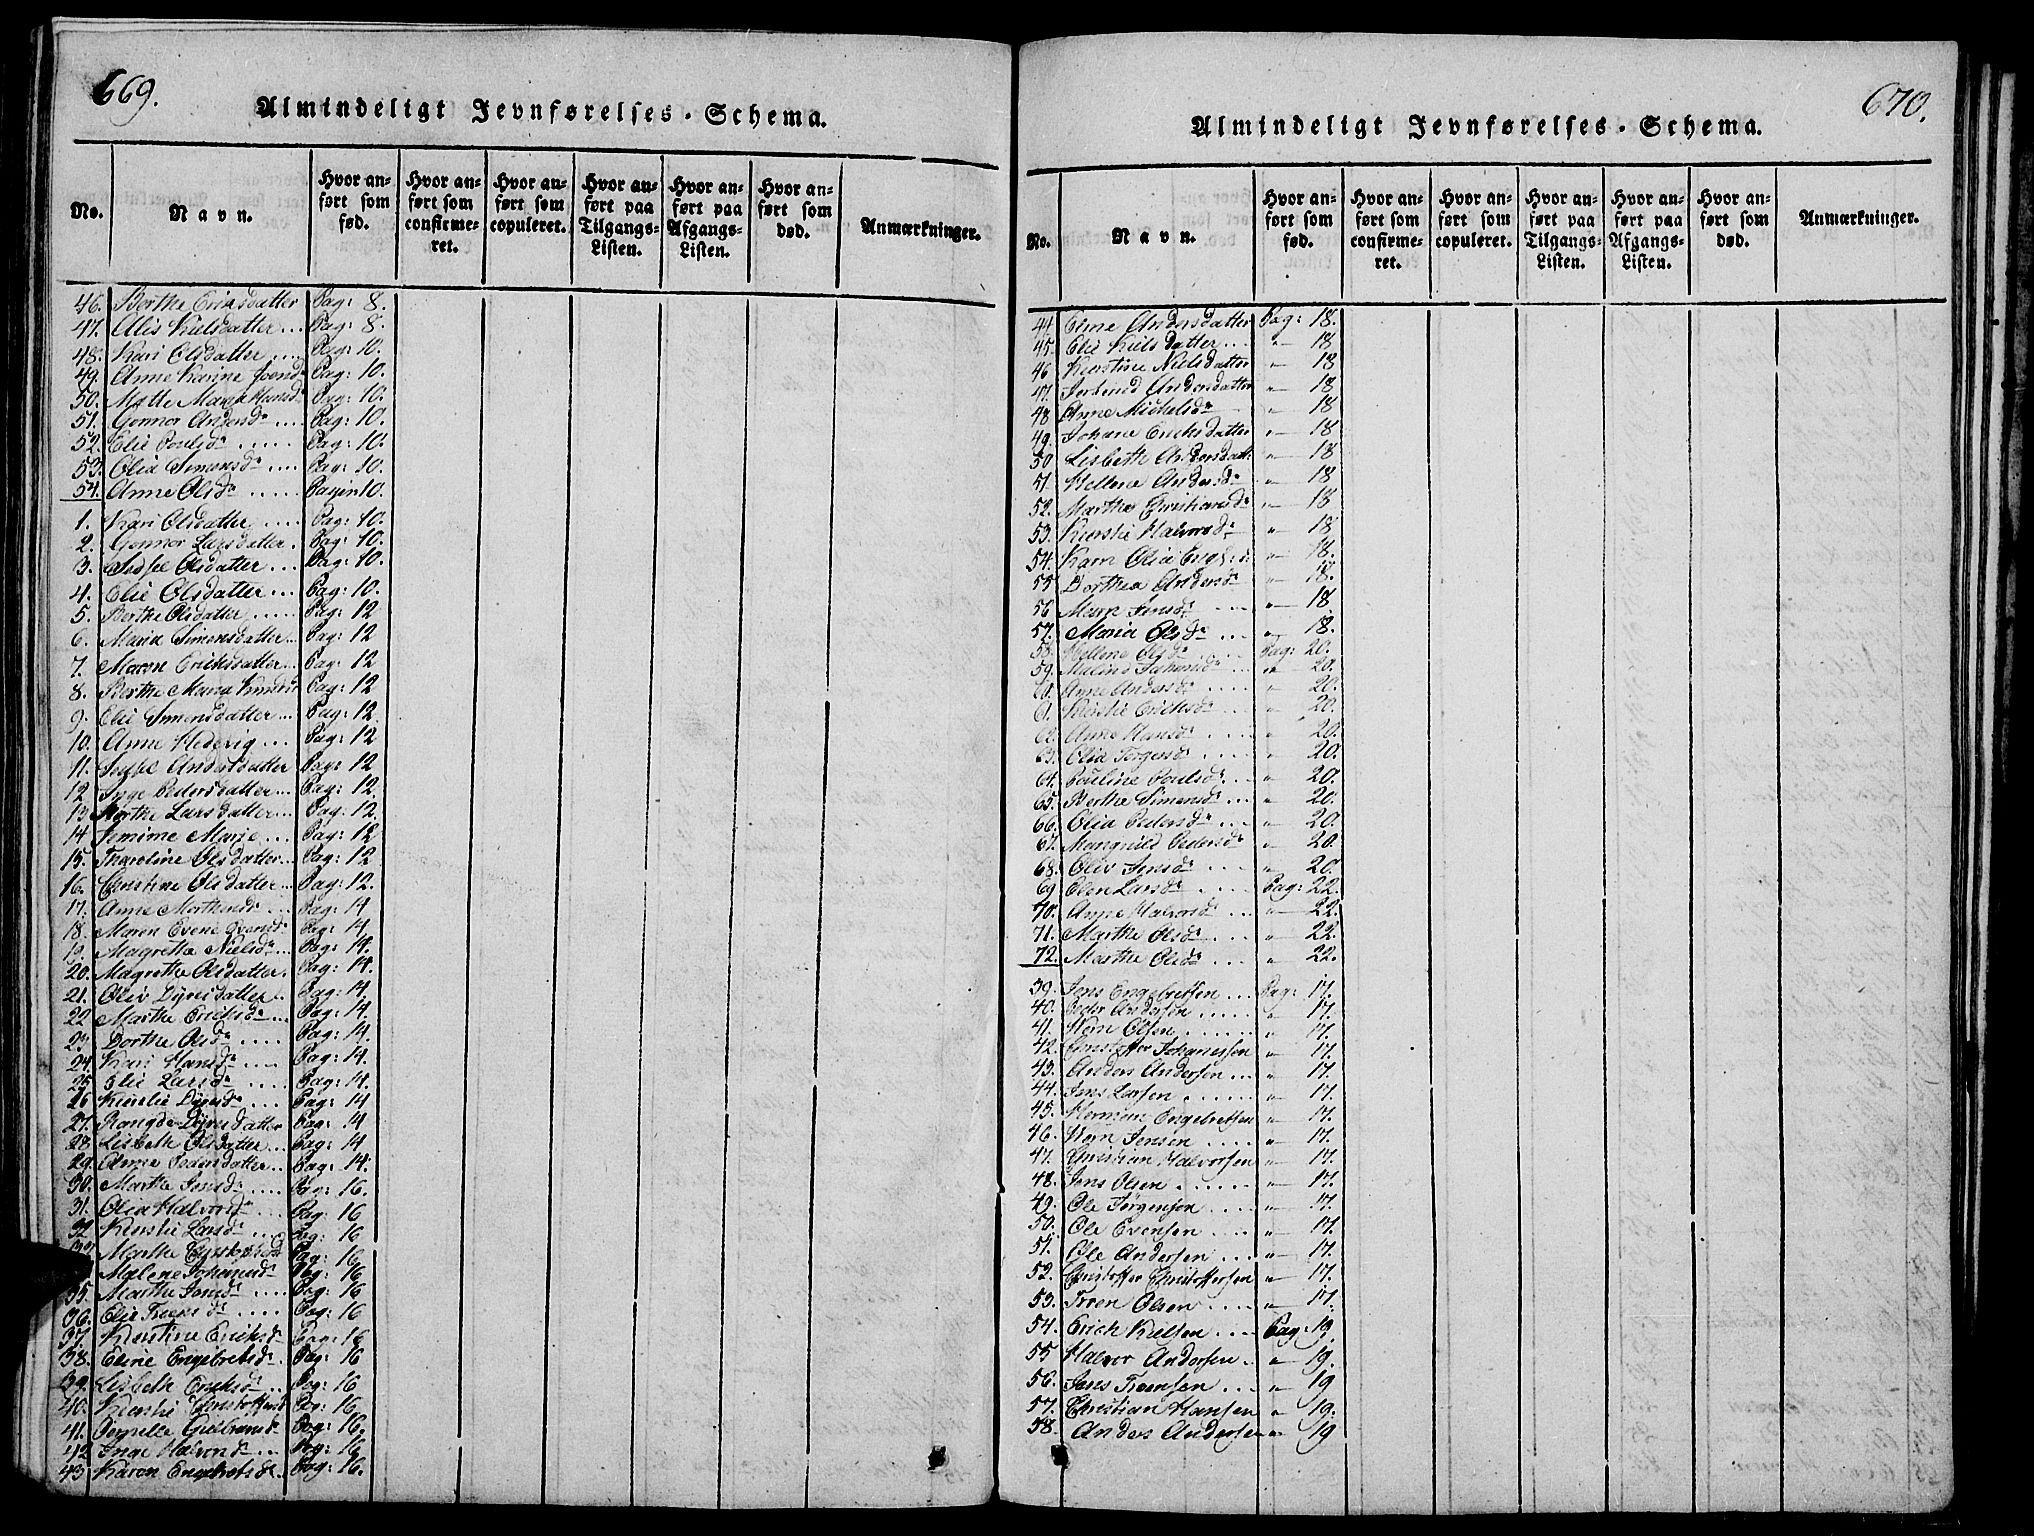 669.
Almindeligt Jevnførelses-Schema.
No.
Navn.
Hvor anført som fød.
Hvor anført som confirmeret.
Hvor anført som copuleret.
Hvor anført paa Tilgangs-Listen.
Hvor anført paa Afgangs-Listen.
Hvor anført som død.
Anmærkninger.
46. Berthe Eriksdatter Pag: 8.
47. Alis Kielsdatter ... Pag: 8.
48. Kari Olsdatter .... Pag: 10.
49. Anne Karine Pag: 10.
50. Mette Maria Hansd Pag: 10.
51. Gonnor Andersdr .... Pag: 10.
52. Elie Poulsdr ..... Pag: 10.
53. Olia Simensdr .... Pag: 10.
54. Anne Olsdr ..... Pagin 10.
1. Kari Olsdatter .... Pag: 10.
2. Gonnor Larsdatter . Pag: 10.
3. Sidsel Olsdatter ... Pag: 10.
4. Elie Olsdatter ... Pag: 10.
5. Berthe Olsdatter ..... Pag: 12
6. Maria Simensdatter .. Pag: 12
7. Maren Eriksdatter ... Pag: 12
8. Berthe Maria Pag: 12
9. Elie Simensdatter ... Pag: 12
10. Anne Hedevig .... Pag: 12
11. Andersdatter Pag: 12
12 Inge Pedersdatter ... Pag: 12.
13 Marthe Larsdatter ... Pag: 12.
14 Marie .... Pag: 12
15. Tharoline Olsdatter .. Pag: 12
16. Christine Olsdatter ... Pag: 12.
17. Anne Morthensdr .... Pag: 14
18. Maren Evene Evensdr Pag: 14
19. Magrethe Nielsdr ... Pag: 14.
20. Magrethe Olsdatter. Pag: 14.
21. Oliv Dyresdatter .. Pag: 14
22 Marthe Ericksdr ... Pag: 14.
23 Dorthe Olsdr .... Pag: 14.
24. Kari Hansdr .... Pag: 14.
25. Elie Larsdr .... Pag: 14.
26 Kiersti Dyresdr .... Pag: 14
27. Rangdi Dyresdatter Pag: 14
28. Lisbeth Olsdatter ... Pag: 14
29. Anne Pedersdatter .. Pag: 14.
30. Marthe Jensdr .... Pag: 16.
31. Olia Halvorsdr ... Pag: 16
32 Kiersti Larsdr .... Pag: 16
Marthe Pag: 16
Malene Johansdr Pag: 16
35. Marthe Jensdr .... Pag: 16
36. Elie Troensdr .... Pag: 16
37. Kirstine Eriksdr Pag: 16
38. Eline Engebretsdr . Pag: 16
39. Lisbeth Ericksdr .. Pag: 16
40. Kiersti Christoffersd Pag: 16
41. Pernille Gulbransdr Pag: 16.
42 Inge Halvorsdr .. Pag: 16
43 Karen Engebretsdr .. Pag: 16.
670.
Almindeligt Jevnførelses-Schema.
No.
Navn.
Hvor anført som fød.
Hvor anført som confirmeret.
Hvor anført som copuleret.
Hvor anført paa Tilgangs-Listen.
Hvor anført paa Afgangs-Listen.
Hvor anført som død.
Anmærkninger.
44. Andersdatter Pag: 18.
45. Elie Kielsdatter ... " 18
46 Kirstine Nielsdatter " 18
47. Andersdatter " 18
48 Anne Michelsdr " 18
49. Johane Ericksdatter " 18
50 Lisbeth Andersdatt: " 18
51. Hellene Andersdr " 18
52. Marthe Christiansdr " 18
53. Kierstie Halvorsdr " 18
54. Karn Olia " 18.
55 Dorthea Andersdr " 18.
56. Marn Jensdr .... " 18
57. Maria Olsdr ... " 18.
58. Hellene Olsdr .... Pag: 20.
59. Malene " 20.
Anne Andersdr .... " 20.
Kierstie Ericksdr .... " 20.
Anne Hansdr .... " 20.
63. Olia Jorgensdr .... " 20.
64. Pouline Poulsdr ... " 20.
65. Berthe Simensdr ... " 20.
66. Olia Pedersdr .... " 20.
67. Manguild Pedersdr " 20.
68. Oliv Jensdr .... " 20.
69 Olea Larsdr .... Pag: 22.
70. Anne Halvorsdr ... " 22.
71. Marthe Olsdr .... " 22.
72. Marthe Olsdr ... " 22.
39. Jens Engebretsen ... Pag: 17.
40. Peder Andersen ..... " 17.
41. Olsen ...... " 17.
42. Christoffer Johannessen " 17.
43. Anders Andersen ... " 17.
44. Jens Larsen ..... " 17.
45. Engebretsen " 17.
46. Jensen ..... " 17.
47. Christian Halvorsen " 17.
48. Jens Olsen ...... " 17.
49. Ole Jørgensen .... " 17.
50. Ole Evensen .... " 17.
51. Ole Andersen .... " 17.
52. Christoffer Christoffersen " 17.
53. Troen Olsen .... " 17.
54. Erich Kielsen .... Pag: 19.
55 Halvor Andersen .. " 19.
56. Jens Troensen ... " 19
57. Christian Hansen " 19.
58. Anders Andersen " 19